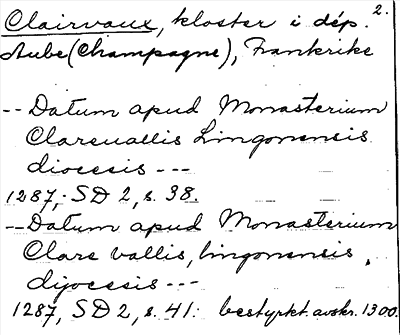 2.
Clairvaux, kloster i dép.
Aube (Champagne), Frankrike
-- Datum apud Monasterium
Clareuallis Lingonensis
diocesis ---
1287, SD 2, s. 38.
-- Datum apud Monasterium
Clare vallis, lingonensis,
dyocesis ---
1287, SD 2, s. 41. bestyrkt. avskr. 1300.